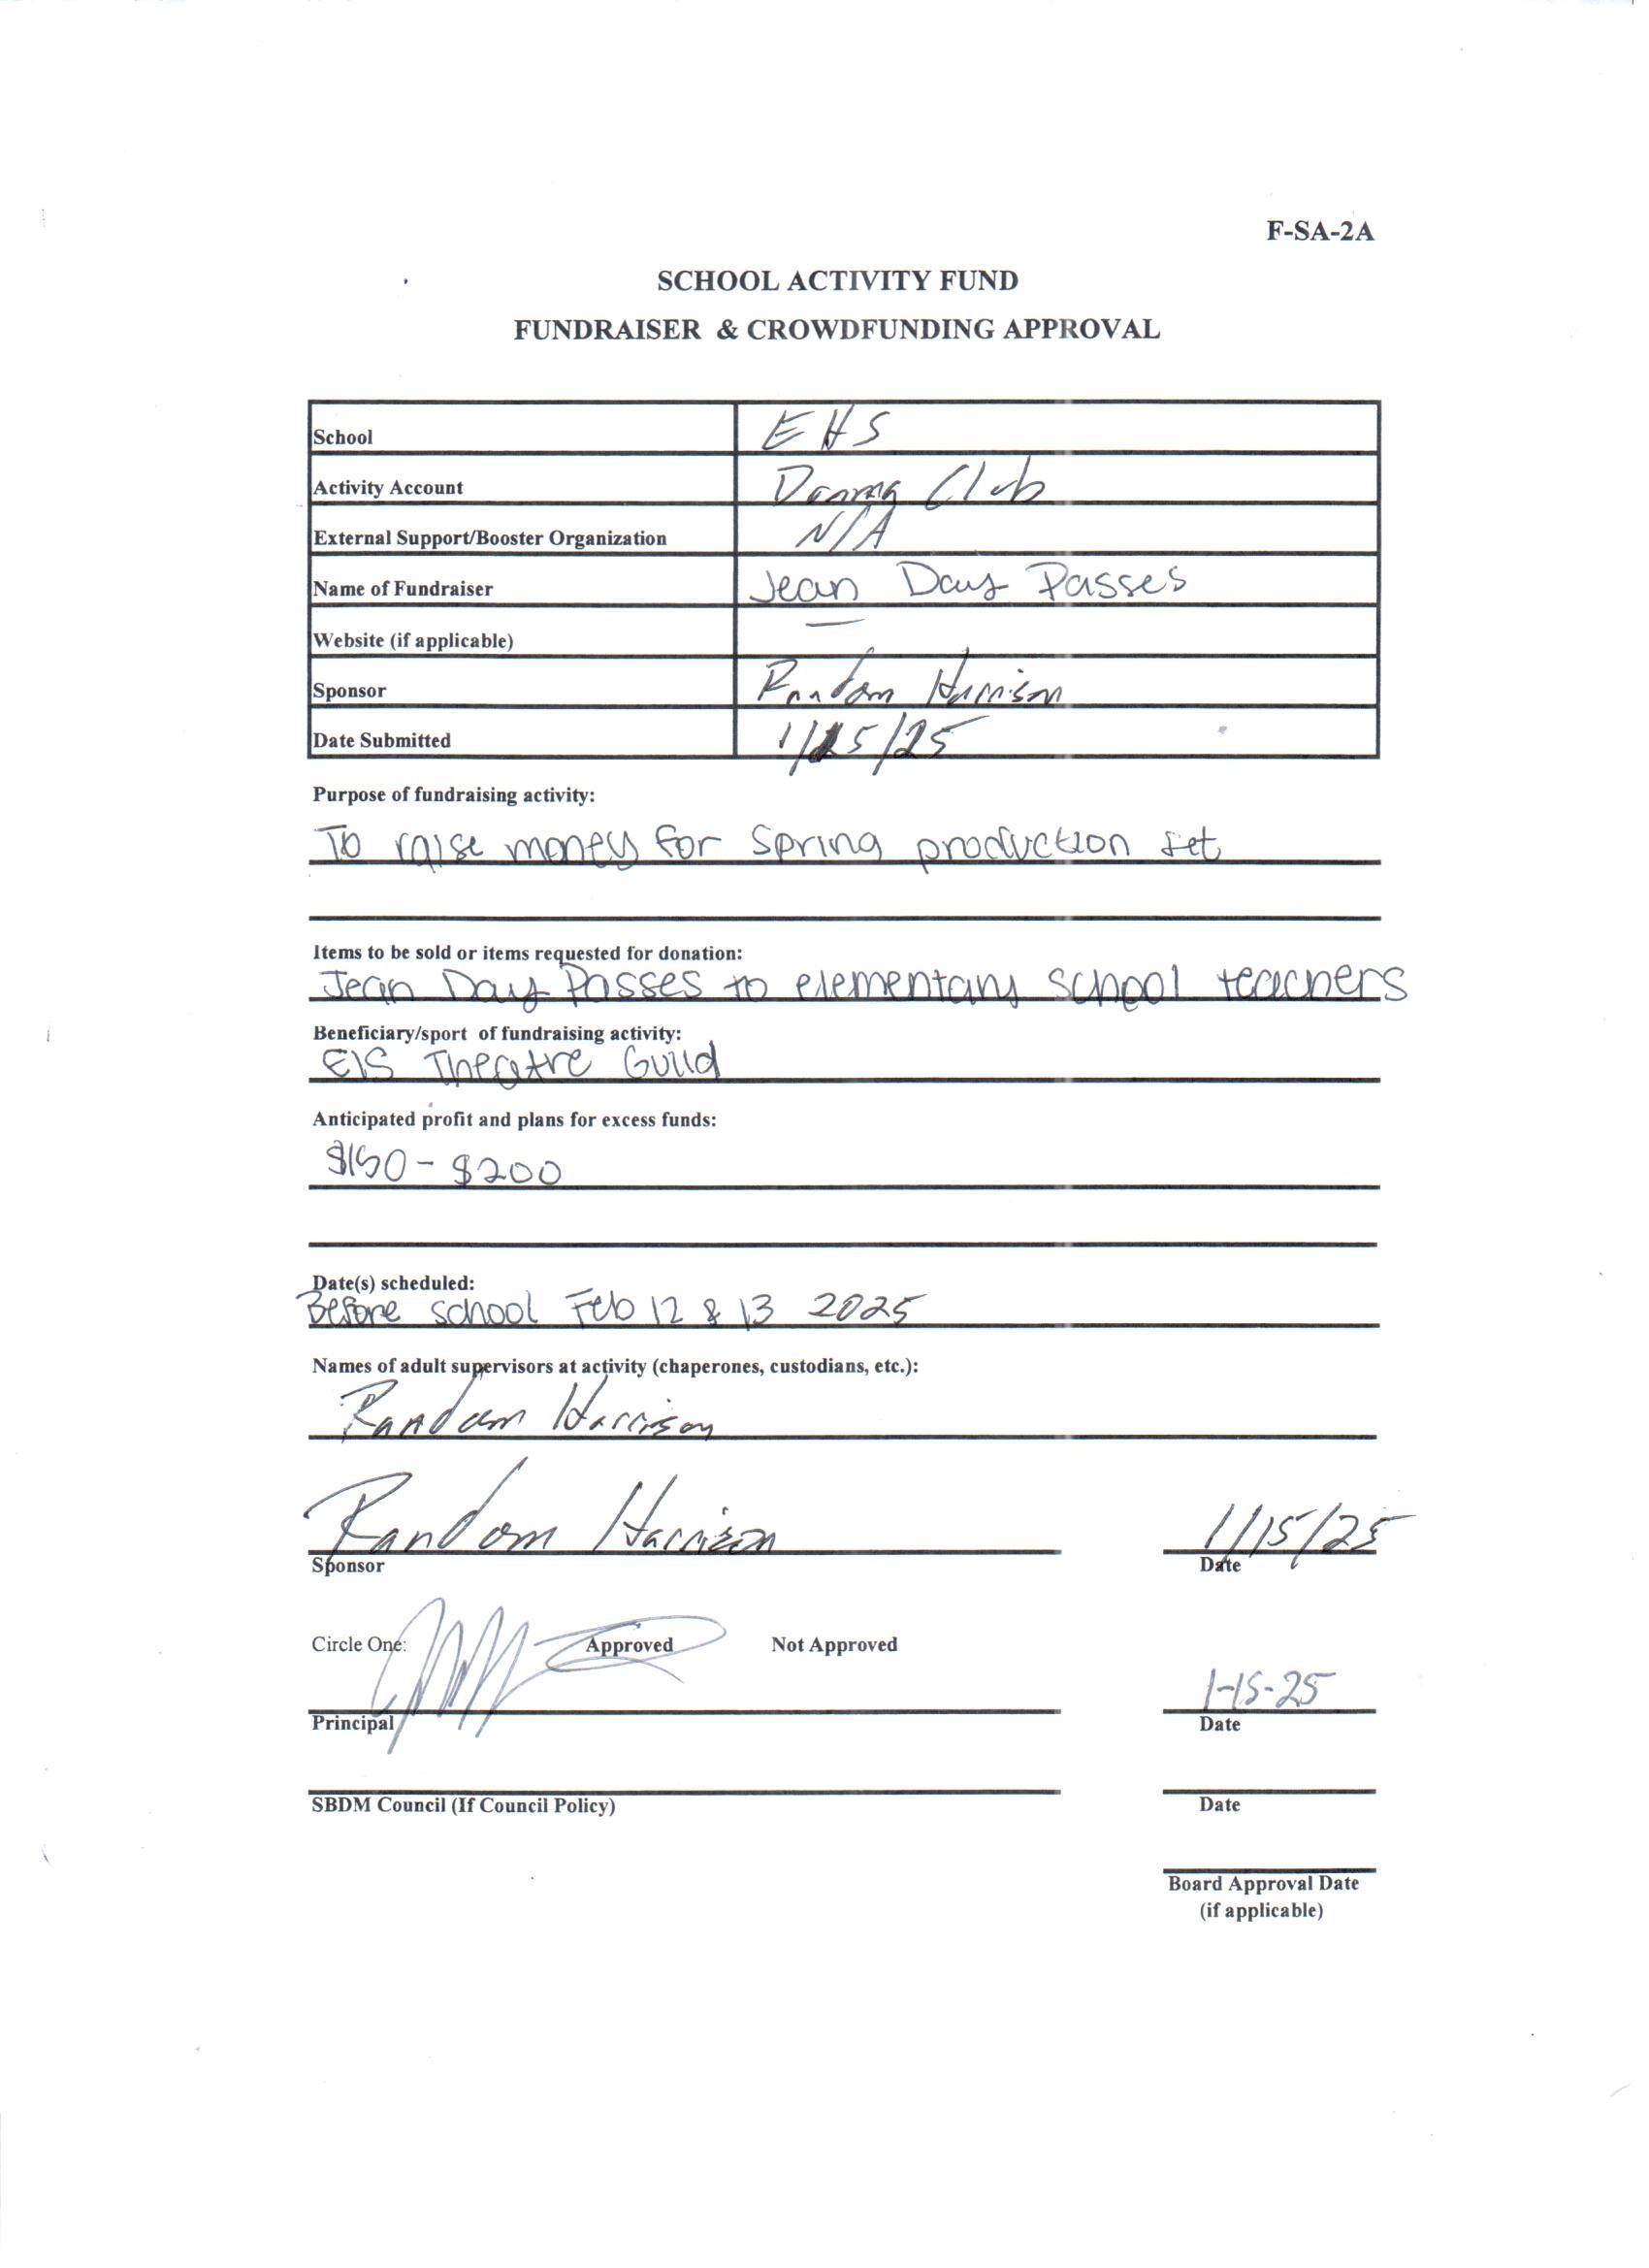 F-SA-2A
SCHOOL ACTIVITY FUND
FUNDRAISER & CROWDFUNDING APPROVAL
School EHS
Activity Account Drama Club
External Support/Booster Organization N/A
Name of Fundraiser Jean Day Passes
Website (if applicable) —
Sponsor Random Harrison
Date Submitted 1/15/25
Purpose of fundraising activity:
To raise money for Spring production set
Items to be sold or items requested for donation:
Jean Day Passes to elementary school teachers
Beneficiary/sport of fundraising activity:
EIS Theatre Guild
Anticipated profit and plans for excess funds:
$150 - $200
Date(s) scheduled:
Before school Feb 12 & 13 2025
Names of adult supervisors at activity (chaperones, custodians, etc.):
Random Harrison
Random Harrison 1/15/25
Sponsor Date
Circle One: Approved Not Approved
1-15-25
Principal Date
SBDM Council (If Council Policy) Date
Board Approval Date
(if applicable)